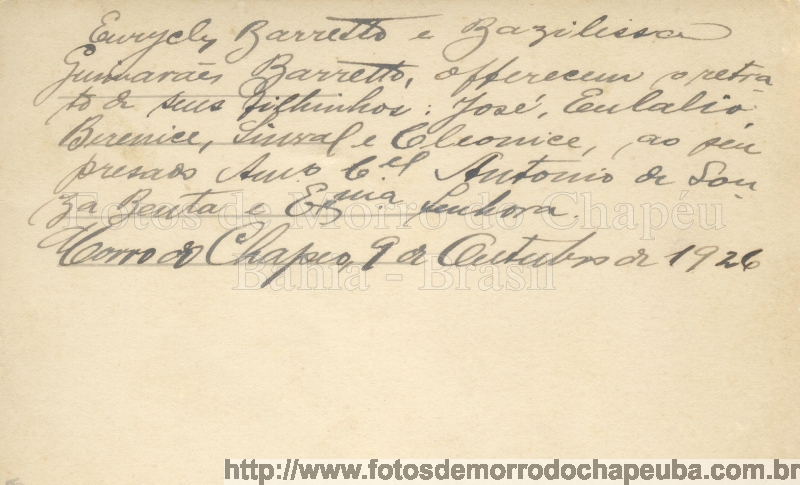 Eurycly Barretto e Bazilissa
Guimarães Barretto, offerecem o retra-
to de seus filhinhos: José, Eulalio
Berenice, Sinval e Cleonice, ao seu
presado Amo. Cel. Antonio de Sou-
za Benta e Exma. Senhora.
Morro do Chapeo, 9 de Outubro de 1926
Fotos de Morro do Chapéu
Bahia - Brasil
http://www.fotosdemorrodochapeuba.com.br